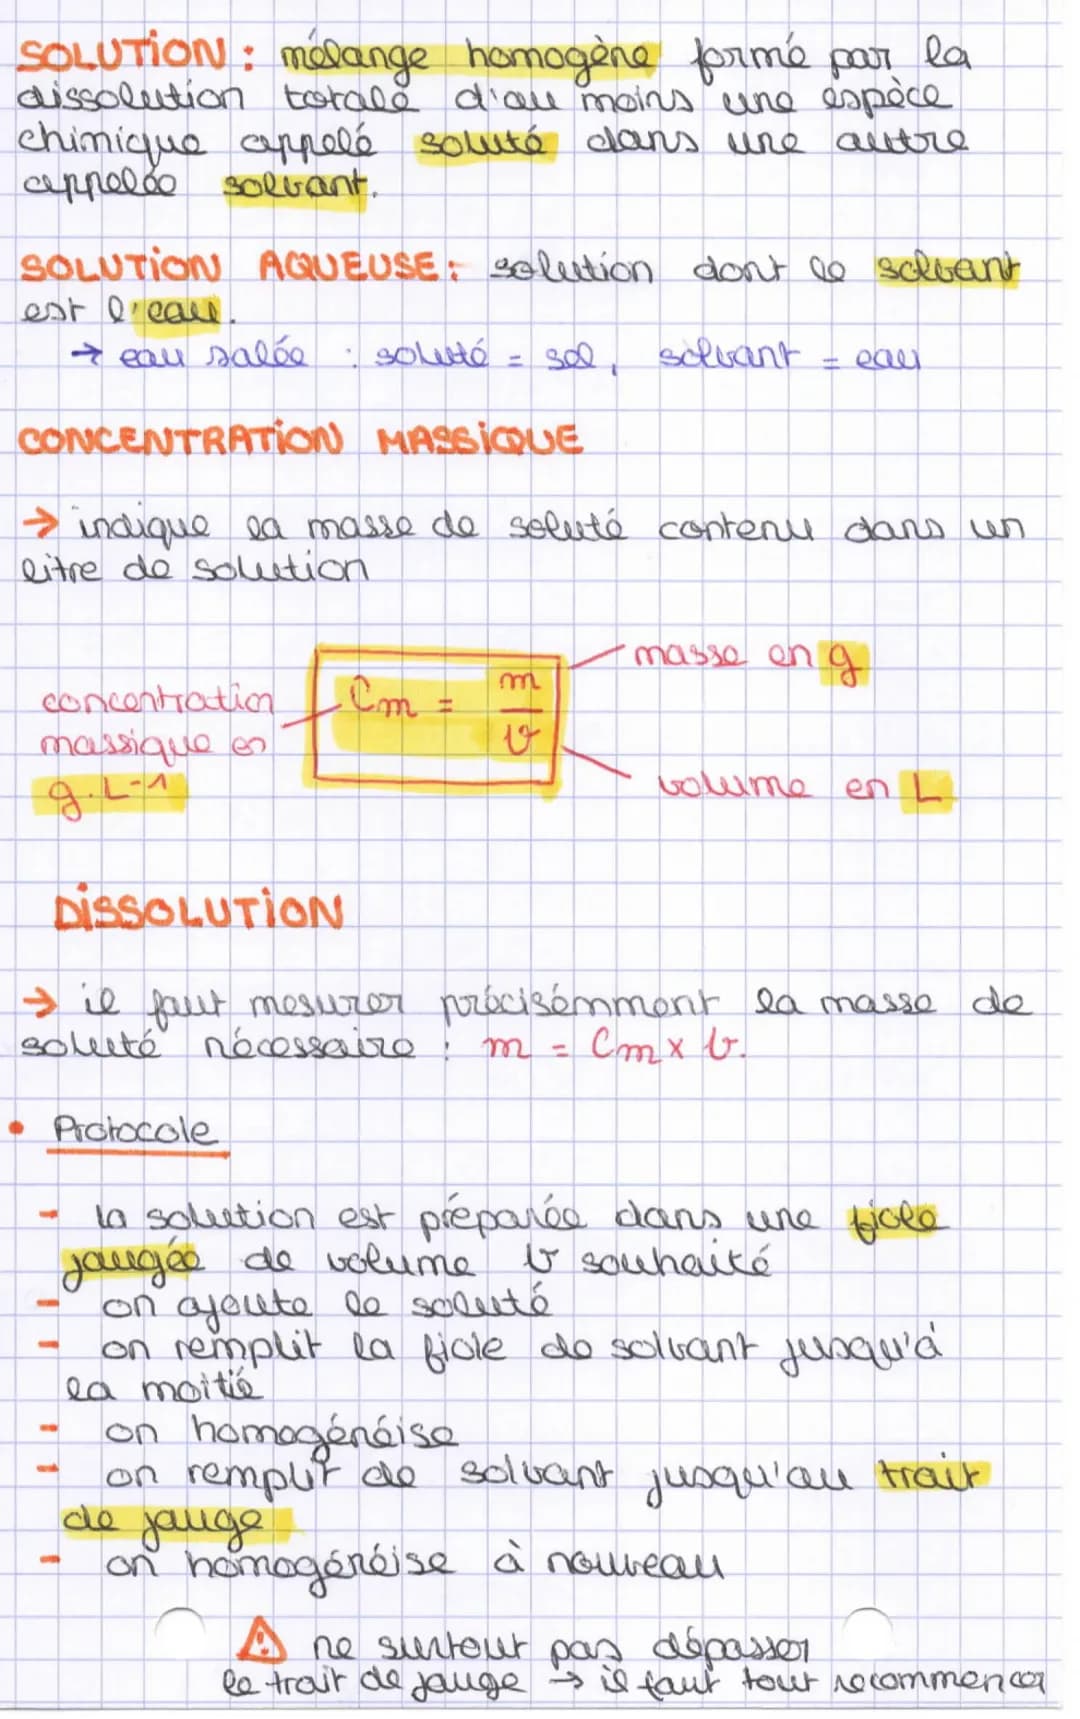 SOLUTION : mélange homogène formé par la
dissolution totale d'au moins une espèce
chimique appelé soluté dans une autre
appelée solvant.
SOLUTION AQUEUSE : solution dont le solvant
est l'eau.
→ eau salée : soluté = sel, solvant = eau
CONCENTRATION MASSIQUE
→ indique la masse de soluté contenu dans un
litre de solution
masse en g
concentration
massique en
g.L-1
Cm = m/v
volume en L
DISSOLUTION
→ il faut mesurer précisémment la masse de
soluté nécessaire : m = Cm x v.
• Protocole
- la solution est préparée dans une fiole
jaugée de volume v souhaité
- on ajoute le soluté
- on remplit la fiole de solvant jusqu'à
la moitié
- on homogénéise
- on remplit de solvant jusqu'au trait
de jauge
- on homogénéise à nouveau
⚠ ne surtout pas dépasser
le trait de jauge → il faut tout recommencer